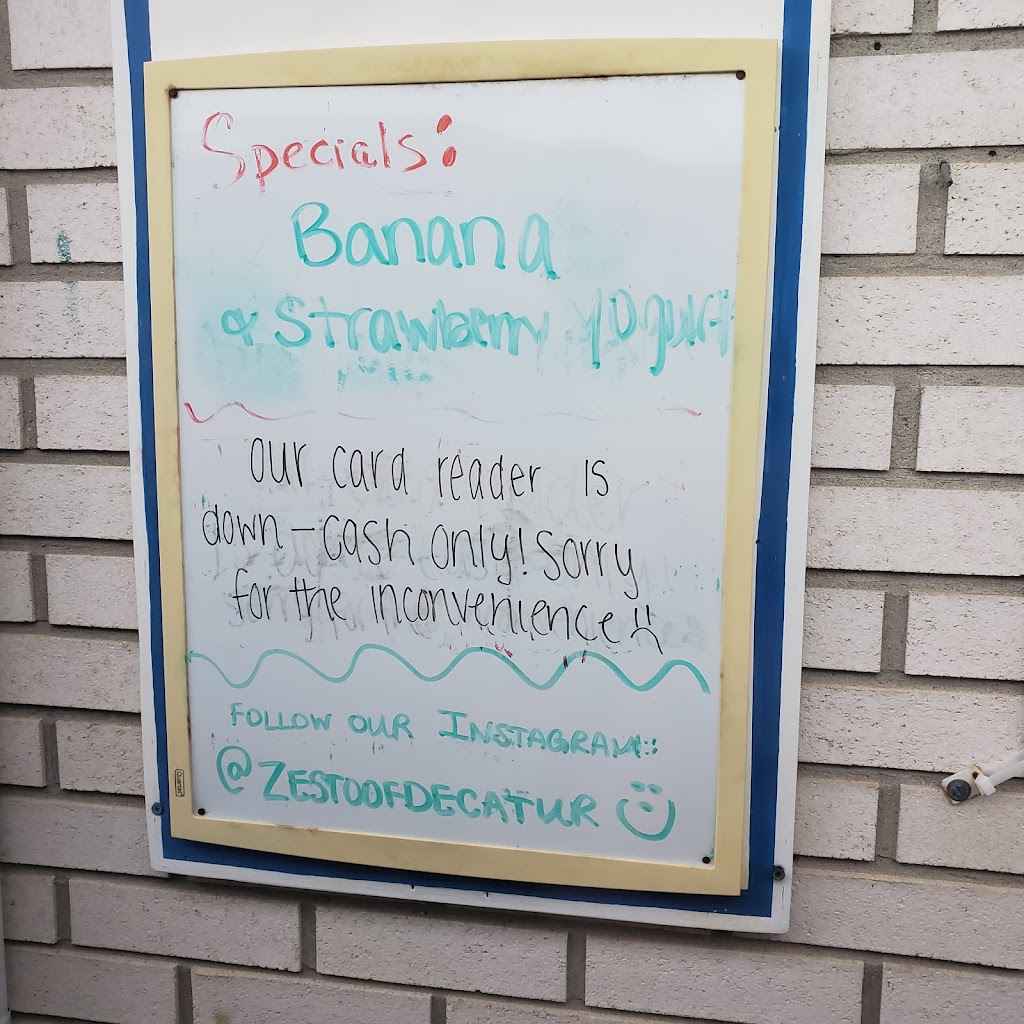 Specials:
Banana
& Strawberry Yogurt
our card reader is
down - cash only! Sorry
for the inconvenience :(
FOLLOW OUR INSTAGRAM:
@ZESTOOFDECATUR :)
Quartet